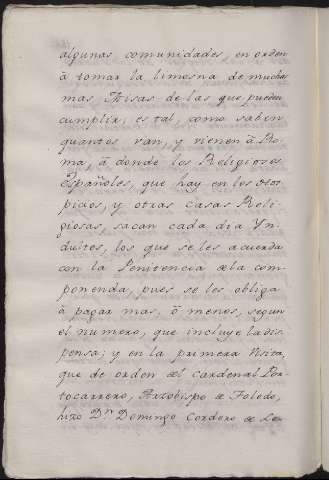 algunas comunidades, en orden
â tomar la limosna de muchas
mas Misas de las que pueden
cumplir; es tal, como saben
quantos van, y vienen â Ro-
ma, â donde los Religiosos
Españoles, que hay en los Hos-
picios, y otras Casas Reli-
giosas, sacan cada dia Yn-
dultos, los que se les acuerda
con la Penitencia de la com-
ponenda, pues se les obliga
â pagar mas, ô menos, segun
el numero, que incluye la dis-
pensa; y en la primera Visita,
que de orden del Cardenal Por-
tocarrero, Arzobispo de Toledo,
hizo Dn. Domingo Cordero de Le-